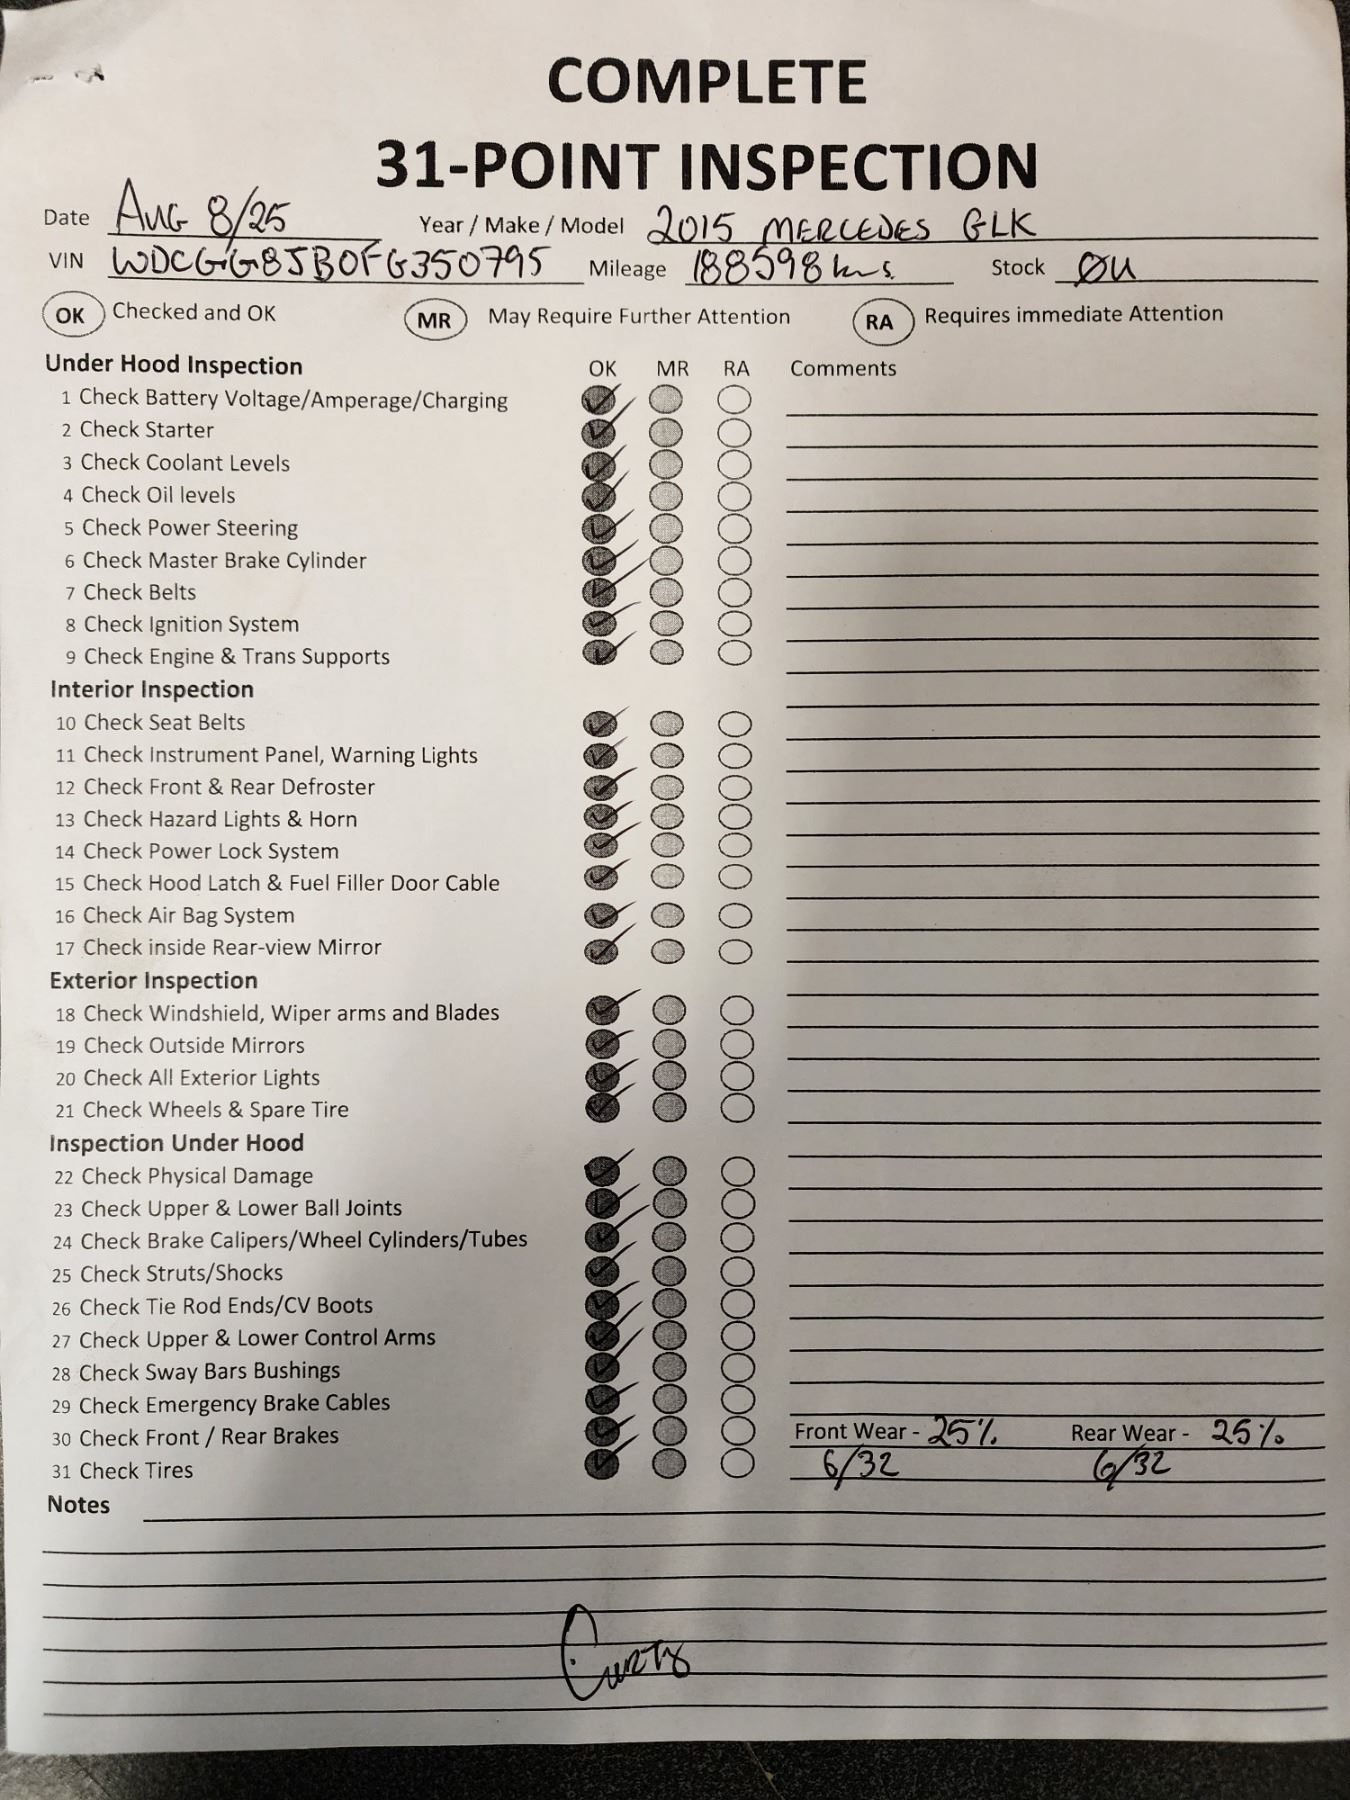 COMPLETE
31-POINT INSPECTION
Date AUG 8/25 Year / Make / Model 2015 MERCEDES GLK
VIN WDCGG8JB0FG350795 Mileage 188598 kms. Stock
OK Checked and OK MR May Require Further Attention RA Requires immediate Attention
Under Hood Inspection OK MR RA Comments
1 Check Battery Voltage/Amperage/Charging
2 Check Starter
3 Check Coolant Levels
4 Check Oil levels
5 Check Power Steering
6 Check Master Brake Cylinder
7 Check Belts
8 Check Ignition System
9 Check Engine & Trans Supports
Interior Inspection
10 Check Seat Belts
11 Check Instrument Panel, Warning Lights
12 Check Front & Rear Defroster
13 Check Hazard Lights & Horn
14 Check Power Lock System
15 Check Hood Latch & Fuel Filler Door Cable
16 Check Air Bag System
17 Check inside Rear-view Mirror
Exterior Inspection
18 Check Windshield, Wiper arms and Blades
19 Check Outside Mirrors
20 Check All Exterior Lights
21 Check Wheels & Spare Tire
Inspection Under Hood
22 Check Physical Damage
23 Check Upper & Lower Ball Joints
24 Check Brake Calipers/Wheel Cylinders/Tubes
25 Check Struts/Shocks
26 Check Tie Rod Ends/CV Boots
27 Check Upper & Lower Control Arms
28 Check Sway Bars Bushings
29 Check Emergency Brake Cables
30 Check Front / Rear Brakes Front Wear - 25% Rear Wear - 25%
31 Check Tires 6/32 6/32
Notes